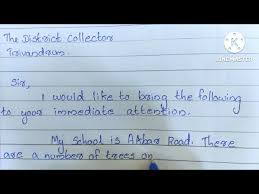 The District Collector
Trivandrum.
Sir,
I would like to bring the following
to your immediate attention.
My School is Akbar Road. There
are a number of trees on
KINEMASTER